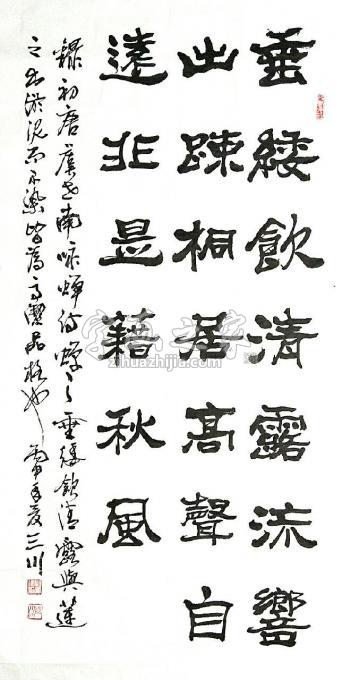 垂緌飲清露流響
出疎桐居高聲自
遠非是藉秋風
錄初唐虞世南咏蟬詩蟬之垂緌飲清露與蓮
之出淤泥而不染皆為高潔品格也 年夏三川
字画之家
zihuazhijia.com